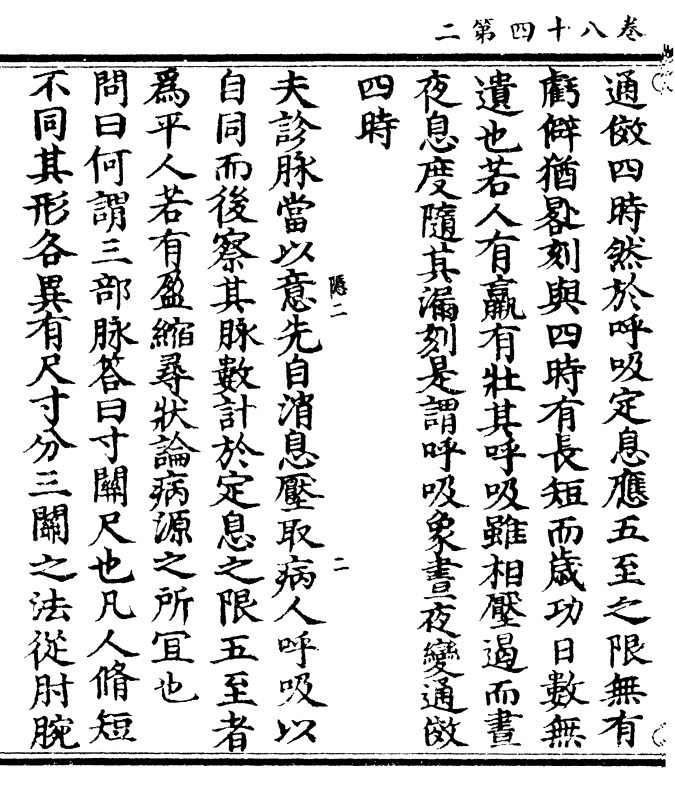 卷八十四第二
通倣四時然於呼吸定息應五至之限無有
虧僻猶晷刻與四時有長短而歲功日數無
遺也若人有羸有壯其呼吸雖相壓遏而晝
夜息度隨其漏刻是謂呼吸象晝夜變通倣
四時
隱二
二
夫診脉當以意先自消息壓取病人呼吸以
自同而後察其脉數計於定息之限五至者
爲平人若有盈縮尋狀論病源之所宜也
問曰何謂三部脉答曰寸關尺也凡人脩短
不同其形各異有尺寸分三關之法從肘腕